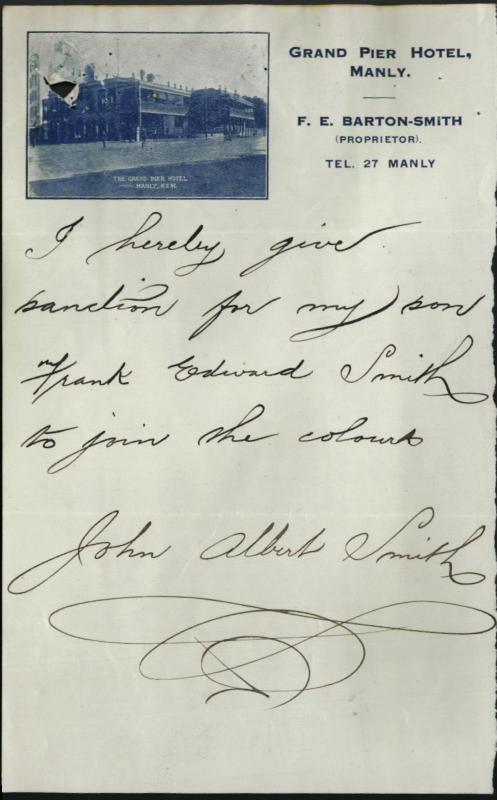 GRAND PIER HOTEL,
MANLY.
F. E. BARTON-SMITH
(PROPRIETOR).
TEL. 27 MANLY
THE GRAND PIER HOTEL
MANLY, N.S.W.
I hereby give
sanction for my son
Frank Edward Smith
to join the colours
John Albert Smith